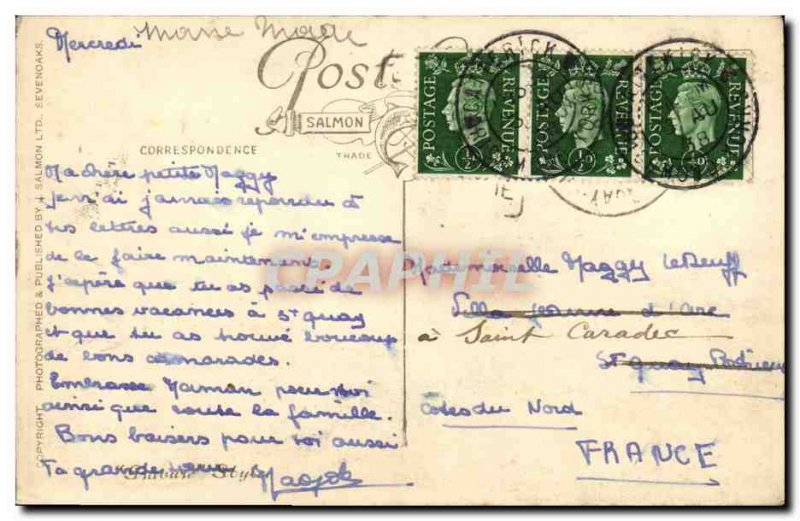 Mercredi
Post
SALMON
TRADE
CORRESPONDENCE
COPYRIGHT. PHOTOGRAPHED & PUBLISHED BY J. SALMON LTD., SEVENOAKS.
POSTAGE REVENUE ½D
POSTAGE REVENUE ½D
POSTAGE REVENUE ½D
Ma chère petite Maggy
Je n'ai jamais répondu à
tes lettres aussi je m'empresse
de le faire maintenant
J'espère que tu as passé de
bonnes vacances à St quay
et que tu as trouvé beaucoup
de bons camarades.
Embrasse Maman pour moi
ainsi que toute la famille.
Bons baisers pour toi aussi
Ta grande
Mademoiselle Maggy LeBeuff
Villa Jeanne d'Arc
à Saint Caradec
St quay
Côtes du Nord
FRANCE
CPARAMA